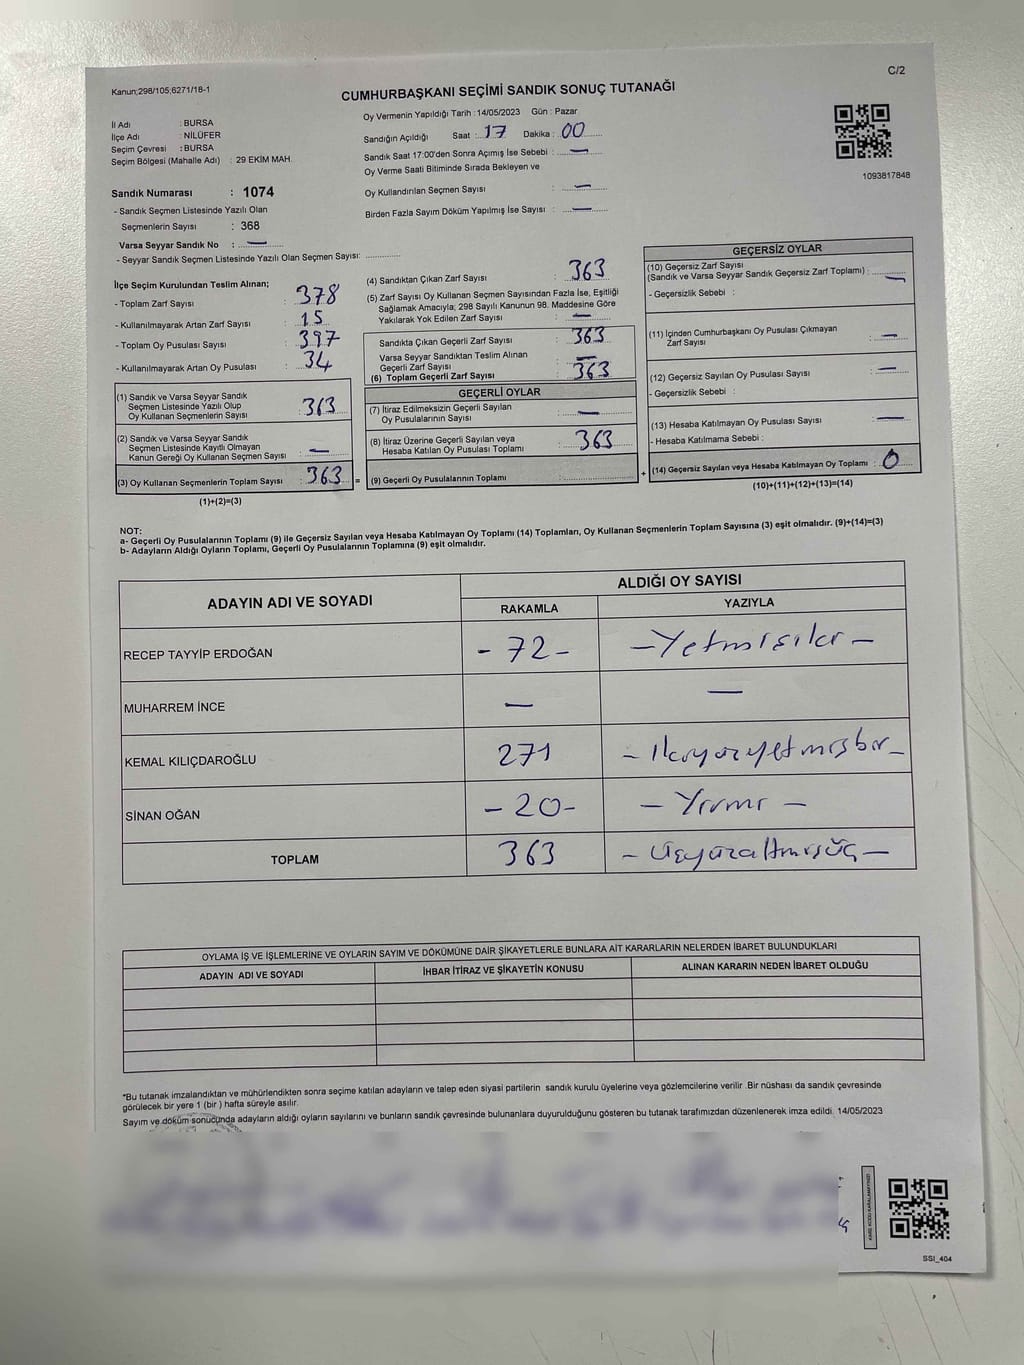 Kanun;298/105;6271/18-1
C/2
CUMHURBAŞKANI SEÇİMİ SANDIK SONUÇ TUTANAĞI
İl Adı : BURSA
İlçe Adı : NİLÜFER
Seçim Çevresi : BURSA
Seçim Bölgesi (Mahalle Adı) : 29 EKİM MAH.
Sandık Numarası : 1074
- Sandık Seçmen Listesinde Yazılı Olan
Seçmenlerin Sayısı : 368
Varsa Seyyar Sandık No : —
- Seyyar Sandık Seçmen Listesinde Yazılı Olan Seçmen Sayısı:
Oy Vermenin Yapıldığı Tarih : 14/05/2023 Gün : Pazar
Sandığın Açıldığı Saat : 17 Dakika : 00
Sandık Saat 17:00'den Sonra Açımış İse Sebebi : —
Oy Verme Saati Bitiminde Sırada Bekleyen ve
Oy Kullandırılan Seçmen Sayısı : —
Birden Fazla Sayım Döküm Yapılmış İse Sayısı : —
1093817848
İlçe Seçim Kurulundan Teslim Alınan;
- Toplam Zarf Sayısı : 378
- Kullanılmayarak Artan Zarf Sayısı : 15
- Toplam Oy Pusulası Sayısı : 397
- Kullanılmayarak Artan Oy Pusulası : 34
(1) Sandık ve Varsa Seyyar Sandık
Seçmen Listesinde Yazılı Olup
Oy Kullanan Seçmenlerin Sayısı : 363
(2) Sandık ve Varsa Seyyar Sandık
Seçmen Listesinde Kayıtlı Olmayan
Kanun Gereği Oy Kullanan Seçmen Sayısı : —
(3) Oy Kullanan Seçmenlerin Toplam Sayısı : 363 =
(1)+(2)=(3)
(4) Sandıktan Çıkan Zarf Sayısı : 363
(5) Zarf Sayısı Oy Kullanan Seçmen Sayısından Fazla İse, Eşitliği
Sağlamak Amacıyla; 298 Sayılı Kanunun 98. Maddesine Göre
Yakılarak Yok Edilen Zarf Sayısı : —
Sandıkta Çıkan Geçerli Zarf Sayısı : 363
Varsa Seyyar Sandıktan Teslim Alınan
Geçerli Zarf Sayısı : —
(6) Toplam Geçerli Zarf Sayısı : 363
GEÇERLİ OYLAR
(7) İtiraz Edilmeksizin Geçerli Sayılan
Oy Pusulalarının Sayısı : —
(8) İtiraz Üzerine Geçerli Sayılan veya
Hesaba Katılan Oy Pusulası Toplamı : 363
(9) Geçerli Oy Pusulalarının Toplamı : +
GEÇERSİZ OYLAR
(10) Geçersiz Zarf Sayısı
(Sandık ve Varsa Seyyar Sandık Geçersiz Zarf Toplamı) : —
- Geçersizlik Sebebi :
(11) İçinden Cumhurbaşkanı Oy Pusulası Çıkmayan
Zarf Sayısı : —
(12) Geçersiz Sayılan Oy Pusulası Sayısı : —
- Geçersizlik Sebebi :
(13) Hesaba Katılmayan Oy Pusulası Sayısı : —
- Hesaba Katılmama Sebebi :
(14) Geçersiz Sayılan veya Hesaba Katılmayan Oy Toplamı : 0
(10)+(11)+(12)+(13)=(14)
NOT:
a- Geçerli Oy Pusulalarının Toplamı (9) ile Geçersiz Sayılan veya Hesaba Katılmayan Oy Toplamı (14) Toplamları, Oy Kullanan Seçmenlerin Toplam Sayısına (3) eşit olmalıdır. (9)+(14)=(3)
b- Adayların Aldığı Oyların Toplamı, Geçerli Oy Pusulalarının Toplamına (9) eşit olmalıdır.
ADAYIN ADI VE SOYADI
ALDIĞI OY SAYISI
RAKAMLA YAZIYLA
RECEP TAYYİP ERDOĞAN - 72 - — Yetmişiki —
MUHARREM İNCE — —
KEMAL KILIÇDAROĞLU 271 - İkiyüzyetmişbir -
SİNAN OĞAN - 20 - — Yirmi —
TOPLAM 363 - Üçyüzaltmışüç -
OYLAMA İŞ VE İŞLEMLERİNE VE OYLARIN SAYIM VE DÖKÜMÜNE DAİR ŞİKAYETLERLE BUNLARA AİT KARARLARIN NELERDEN İBARET BULUNDUKLARI
ADAYIN ADI VE SOYADI İHBAR İTİRAZ VE ŞİKAYETİN KONUSU ALINAN KARARIN NEDEN İBARET OLDUĞU
*Bu tutanak imzalandıktan ve mühürlendikten sonra seçime katılan adayların ve talep eden siyasi partilerin sandık kurulu üyelerine veya gözlemcilerine verilir .Bir nüshası da sandık çevresinde
görülecek bir yere 1 (bir ) hafta süreyle asılır.
Sayım ve döküm sonucunda adayların aldığı oyların sayılarını ve bunların sandık çevresinde bulunanlara duyurulduğunu gösteren bu tutanak tarafımızdan düzenlenerek imza edildi. 14/05/2023
KARE KODU KARALAMAYINIZ!
SSI_404